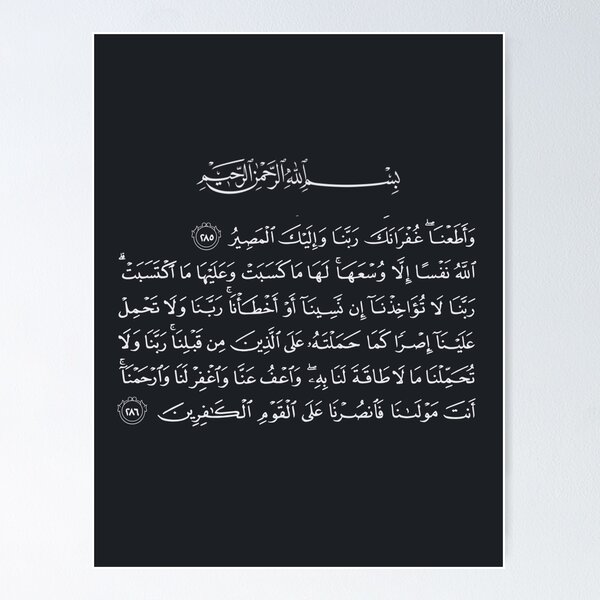 بِسْمِ ٱللَّهِ ٱلرَّحْمَٰنِ ٱلرَّحِيمِ
وَأَطَعْنَا ۖ غُفْرَانَكَ رَبَّنَا وَإِلَيْكَ ٱلْمَصِيرُ ٢٨٥
ٱللَّهُ نَفْسًا إِلَّا وُسْعَهَا ۚ لَهَا مَا كَسَبَتْ وَعَلَيْهَا مَا ٱكْتَسَبَتْ ۗ
رَبَّنَا لَا تُؤَاخِذْنَآ إِن نَّسِينَآ أَوْ أَخْطَأْنَا ۚ رَبَّنَا وَلَا تَحْمِلْ
عَلَيْنَآ إِصْرًا كَمَا حَمَلْتَهُۥ عَلَى ٱلَّذِينَ مِن قَبْلِنَا ۚ رَبَّنَا وَلَا
تُحَمِّلْنَا مَا لَا طَاقَةَ لَنَا بِهِۦ ۖ وَٱعْفُ عَنَّا وَٱغْفِرْ لَنَا وَٱرْحَمْنَآ ۚ
أَنتَ مَوْلَىٰنَا فَٱنصُرْنَا عَلَى ٱلْقَوْمِ ٱلْكَٰفِرِينَ ٢٨٦